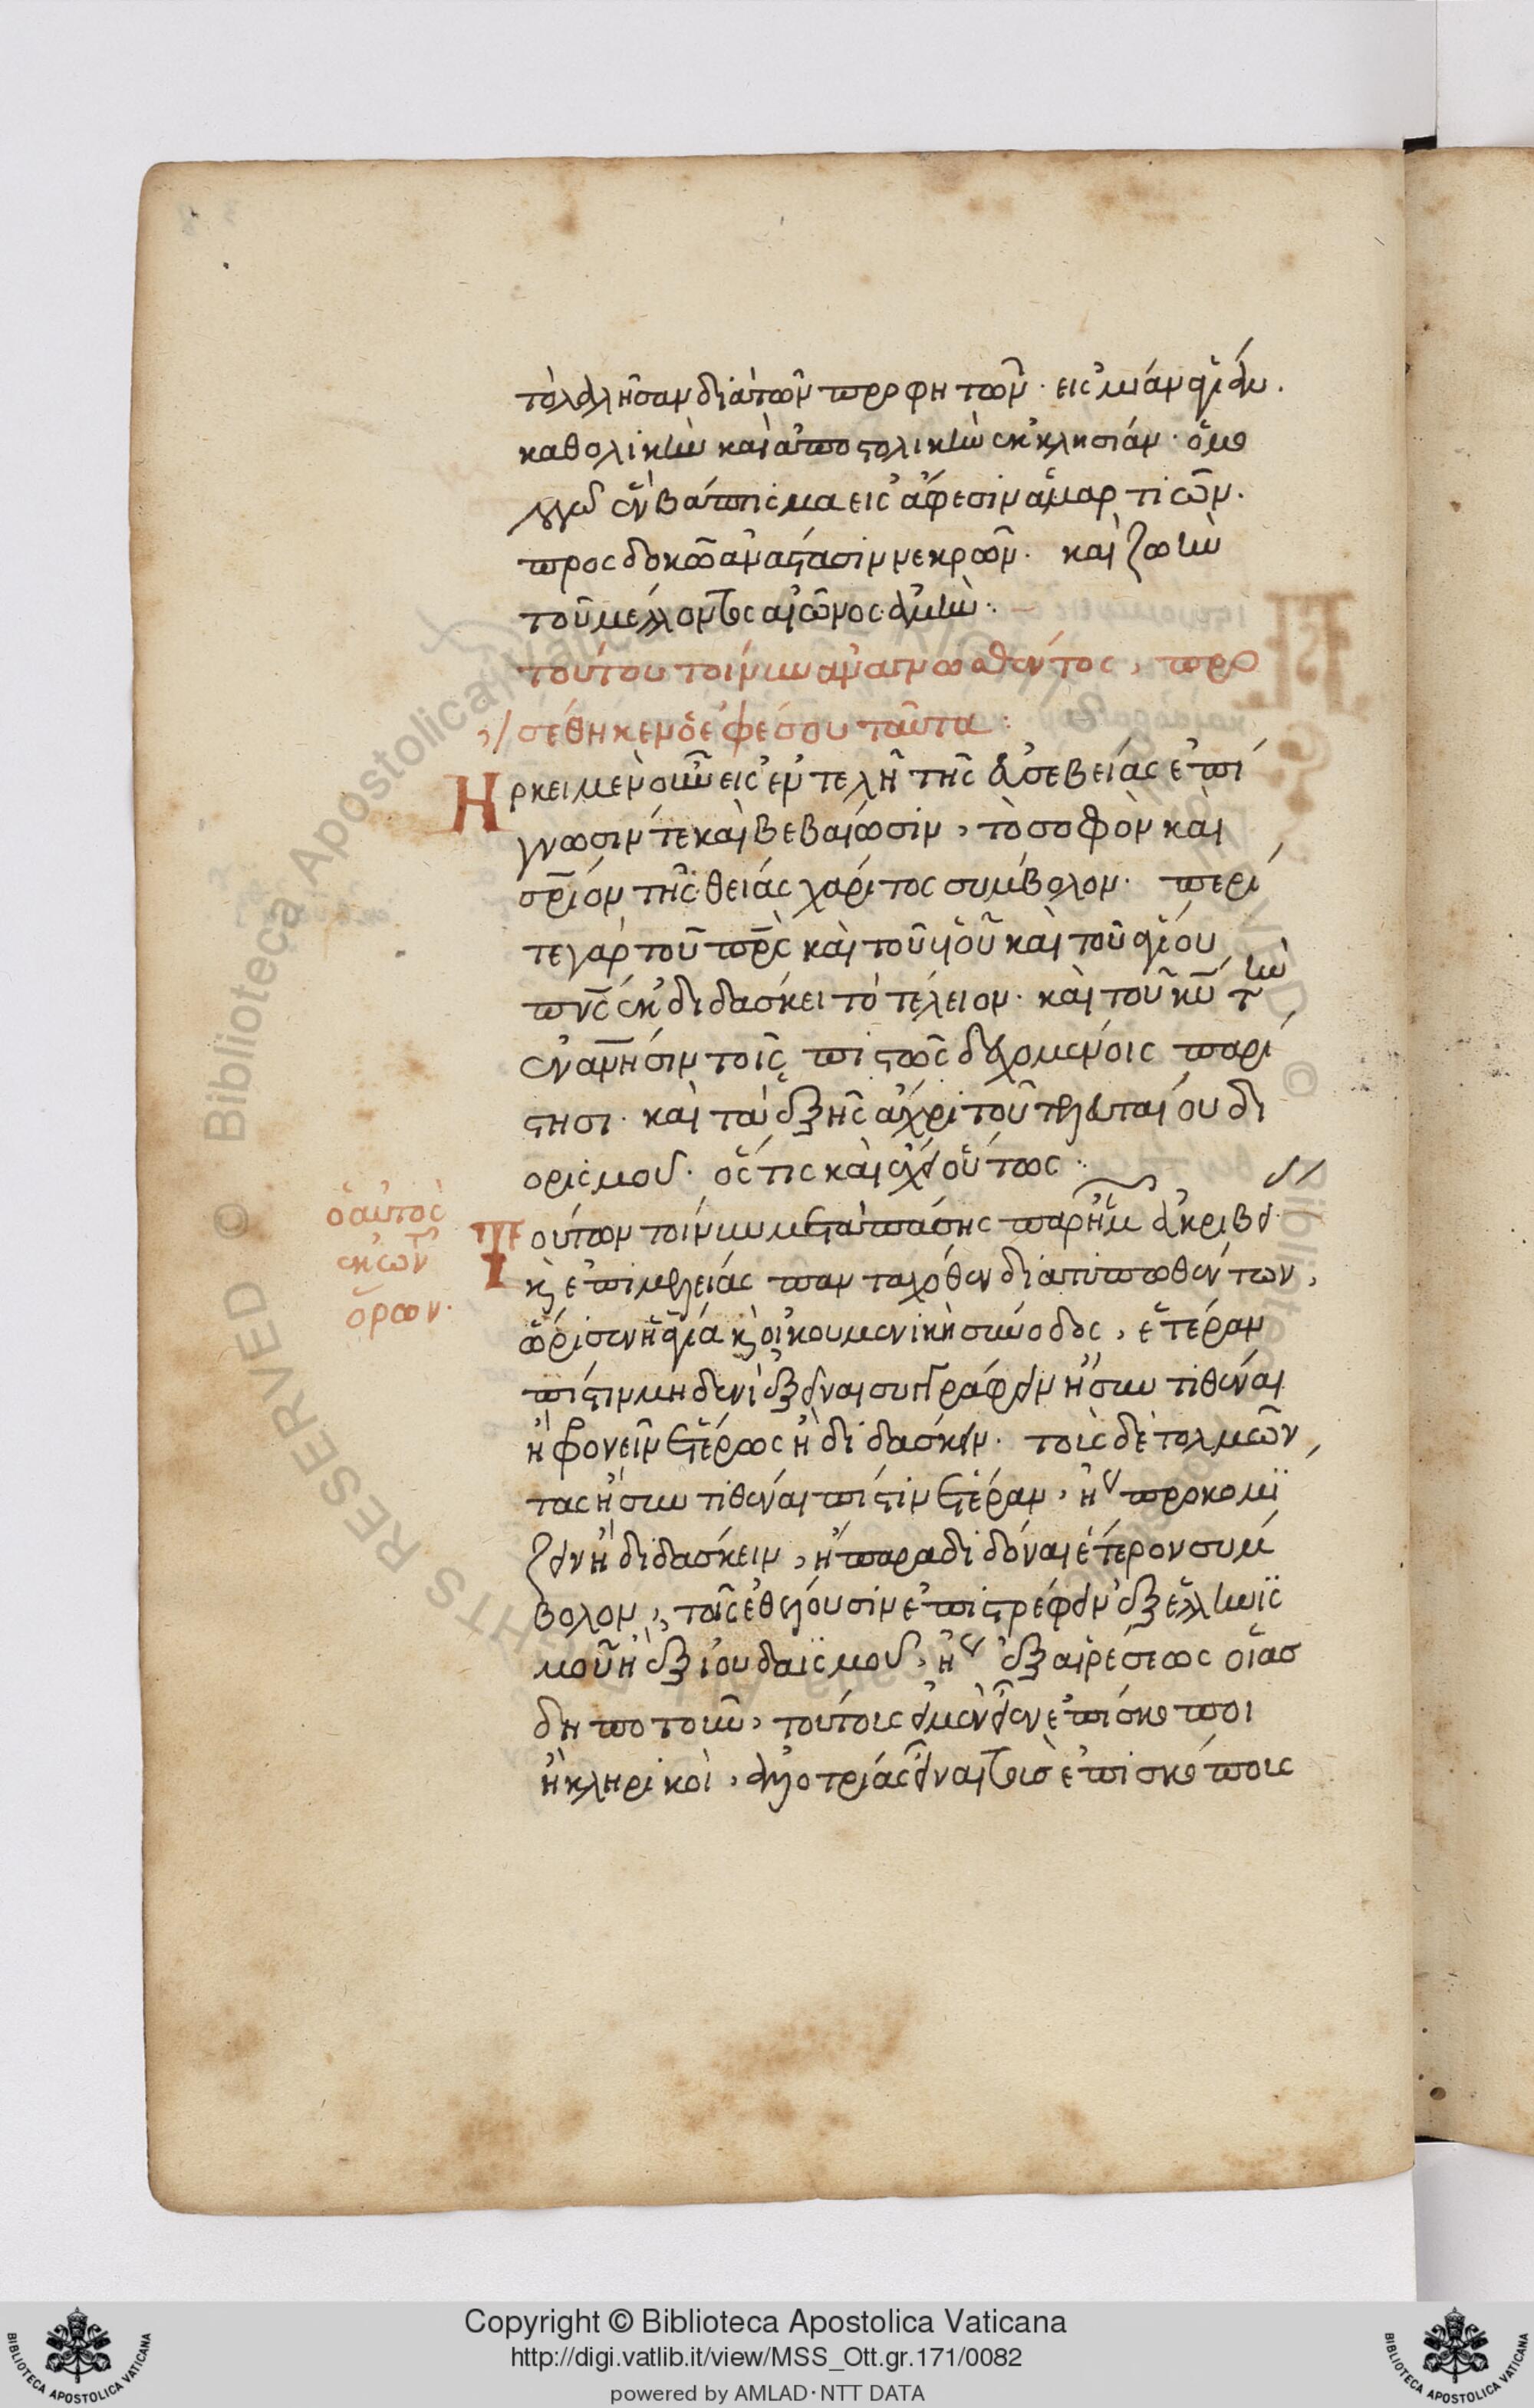 τὸ λαλῆσαν διὰ τῶν προφητῶν· εἰς μίαν ἁγίαν.
καθολικὴν καὶ ἀποστολικὴν ἐκκλησίαν· ὁμο
λογῶ ἓν βάπτισμα εἰς ἄφεσιν ἁμαρτιῶν.
προσδοκῶ ἀνάστασιν νεκρῶν. καὶ ζωὴν
τοῦ μέλλοντος αἰῶνος· ἀμήν:
τούτου τοίνυν ἀναγνωσθέντος, προ
σέθηκεν ὁ ἐφέσου ταῦτα:
Ἤρκει μὲν οὖν εἰς ἐντελῆ τῆς εὐσεβείας ἐπί
γνωσίν τε καὶ βεβαίωσιν, τὸ σοφὸν καὶ
σρ̅ιον τῆς θείας χάριτος σύμβολον· περί
τε γὰρ τοῦ πρ̅ς καὶ τοῦ υἱοῦ καὶ τοῦ ἁγίου
πν̅ς ἐκδιδάσκει τὸ τέλειον· καὶ τοῦ κ̅υ τὴν
ἐνανθρώπησιν τοῖς πιστῶς δεχομένοις παρί
στησι· καὶ τὰ ἑξῆς ἄχρι τοῦ τελευταίου δι
ορισμοῦ· ὅς τις καὶ ἔχει οὕτως·
ὁ αὐτὸς
ἐκ τῶν
ὅρων·
Τούτων τοίνυν μετὰ πάσης παρ' ἡμῶν ἀκριβεί
κ̀ ἐπιμελείας πανταχόθεν διατυπωθέντων,
ὥρισεν ἡ ἁγία κ̀ οἰκουμενικὴ σύνοδος, ἑτέραν
πίστιν μηδενὶ ἐξεῖναι συγγράφειν ἢ συντιθέναι
ἢ φρονεῖν ἑτέρως ἢ διδάσκειν· τοὺς δὲ τολμῶν
τας ἢ συντιθέναι πίστιν ἑτέραν, ἢ προκομί
ζειν ἢ διδάσκειν, ἢ παραδιδόναι ἕτερον σύμ
βολον, τοῖς ἐθέλουσιν ἐπιστρέφειν ἐξ ἑλληνισ
μοῦ ἢ ἐξ ἰουδαϊσμοῦ, ἢ ἐξ αἱρέσεως οἵασ
δηποτοῦν, τούτους εἰ μὲν εἶεν ἐπίσκοποι
ἢ κληρικοὶ, ἀλλοτρίους εἶναι τοὺς ἐπισκόπους
Copyright © Biblioteca Apostolica Vaticana
http://digi.vatlib.it/view/MSS_Ott.gr.171/0082
powered by AMLAD·NTT DATA